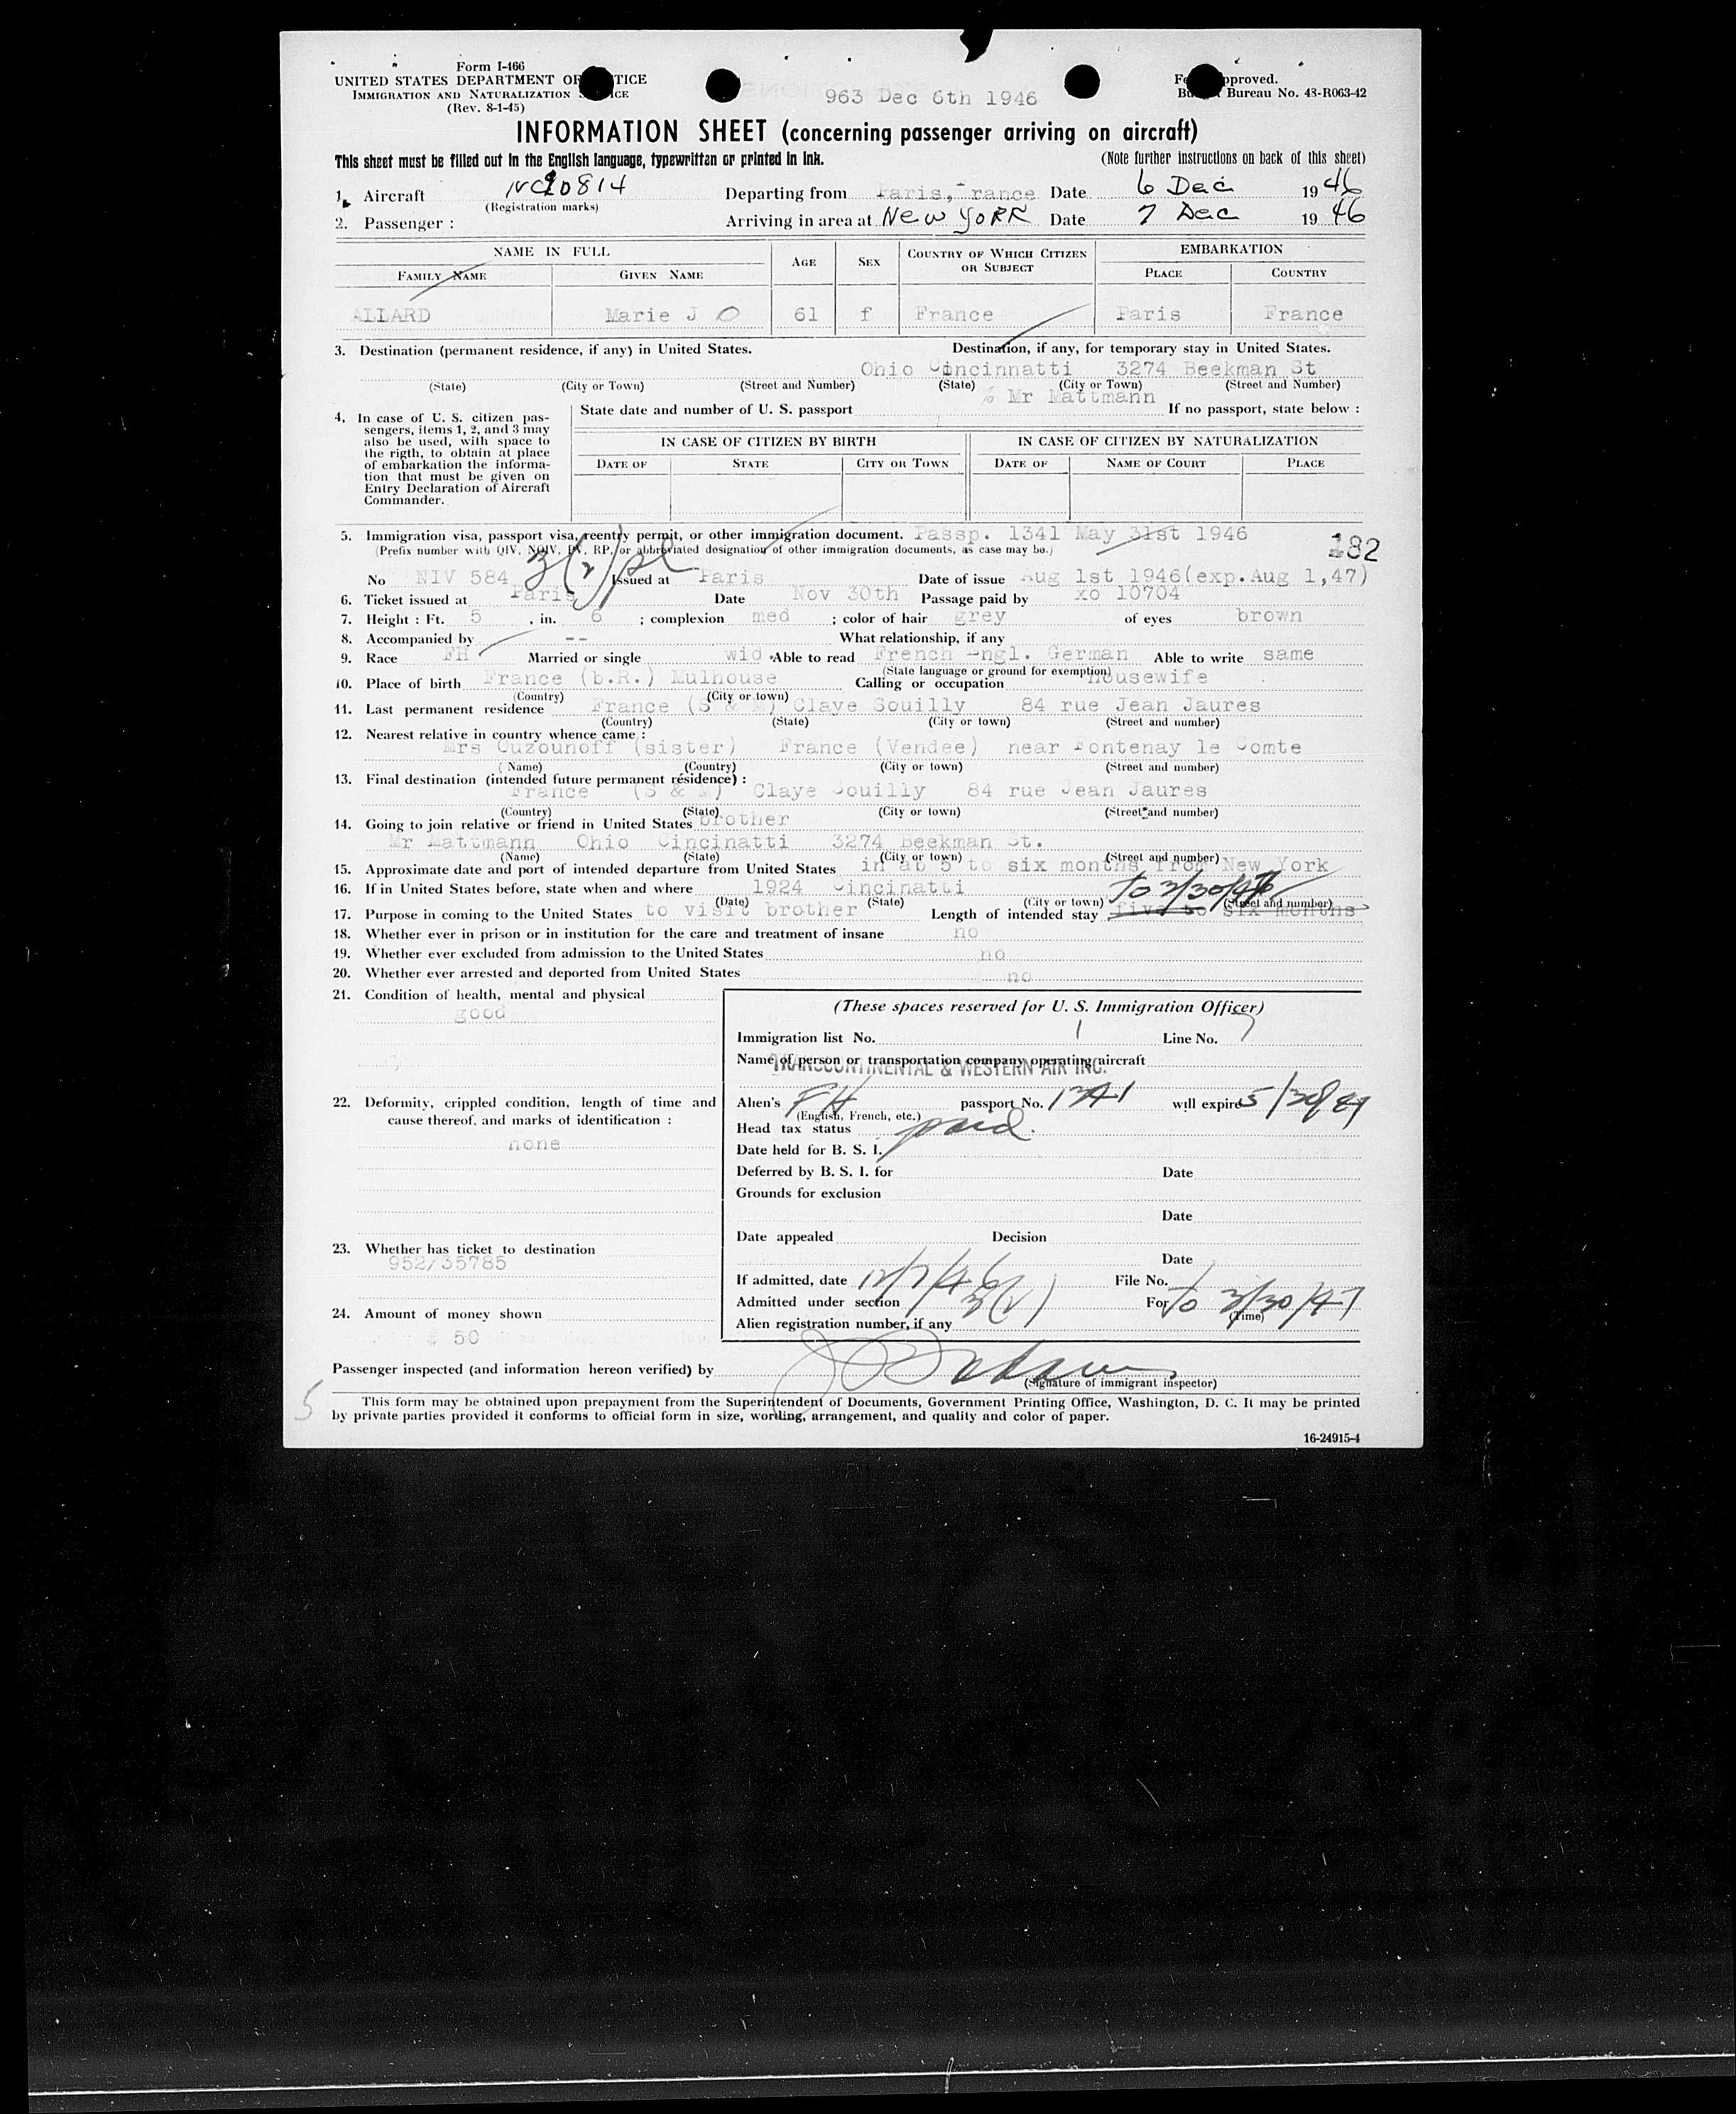 Form I-466
UNITED STATES DEPARTMENT OF JUSTICE
IMMIGRATION AND NATURALIZATION SERVICE
(Rev. 8-1-45)
963 Dec 6th 1946
Form approved.
Budget Bureau No. 43-R063-42
INFORMATION SHEET (concerning passenger arriving on aircraft)
This sheet must be filled out in the English language, typewritten or printed in ink. (Note further instructions on back of this sheet)
1. Aircraft NC90814 Departing from Paris, France Date 6 Dec 1946
(Registration marks)
2. Passenger : Arriving in area at New YORK Date 7 Dec 19 46
NAME IN FULL AGE SEX COUNTRY OF WHICH CITIZEN OR SUBJECT EMBARKATION
FAMILY NAME GIVEN NAME PLACE COUNTRY
ALLARD Marie J O 61 f France Paris France
3. Destination (permanent residence, if any) in United States. Destination, if any, for temporary stay in United States.
Ohio Cincinnatti 3274 Beekman St
(State) (City or Town) (Street and Number) (State) (City or Town) (Street and Number)
% Mr Mattmann
4. In case of U. S. citizen pas-
sengers, items 1, 2, and 3 may
also be used, with space to
the rigth, to obtain at place
of embarkation the informa-
tion that must be given on
Entry Declaration of Aircraft
Commander.
State date and number of U. S. passport If no passport, state below :
IN CASE OF CITIZEN BY BIRTH IN CASE OF CITIZEN BY NATURALIZATION
DATE OF STATE CITY OR TOWN DATE OF NAME OF COURT PLACE
5. Immigration visa, passport visa, reentry permit, or other immigration document. Passp. 1341 May 31st 1946
(Prefix number with QIV, NQIV, PV, RP, or abbreviated designation of other immigration documents, as case may be.) 182
3(2)
No NIV 584 Issued at Paris Date of issue Aug 1st 1946(exp.Aug 1,47)
6. Ticket issued at Paris Date Nov 30th Passage paid by xo 10704
7. Height : Ft. 5 , in. 6 ; complexion med ; color of hair grey of eyes brown
8. Accompanied by -- What relationship, if any
9. Race FH Married or single wid. Able to read French Engl. German Able to write same
(State language or ground for exemption)
10. Place of birth France (b.R.) Mulhouse Calling or occupation Housewife
(Country) (City or town)
11. Last permanent residence France (S & M) Claye Souilly 84 rue Jean Jaures
(Country) (State) (City or town) (Street and number)
12. Nearest relative in country whence came :
Mrs Ouzounoff (sister) France (Vendee) near Fontenay le Comte
(Name) (Country) (City or town) (Street and number)
13. Final destination (intended future permanent résidence) :
France (S & M) Claye Souilly 84 rue Jean Jaures
(Country) (State) (City or town) (Street and number)
14. Going to join relative or friend in United States brother
Mr Mattmann Ohio Cincinatti 3274 Beekman St.
(Name) (State) (City or town) (Street and number)
15. Approximate date and port of intended departure from United States in ab 5 to six months from New York
16. If in United States before, state when and where 1924 Cincinatti
(Date) (State) (City or town) (Street and number)
to 3/30/47
17. Purpose in coming to the United States to visit brother Length of intended stay five to six months
18. Whether ever in prison or in institution for the care and treatment of insane no
19. Whether ever excluded from admission to the United States no
20. Whether ever arrested and deported from United States no
21. Condition of health, mental and physical
good
22. Deformity, crippled condition, length of time and
cause thereof, and marks of identification :
none
23. Whether has ticket to destination
952/35785
24. Amount of money shown
$ 50
(These spaces reserved for U. S. Immigration Officer)
Immigration list No. 1 Line No. 7
Name of person or transportation company operating aircraft
TRANSCONTINENTAL & WESTERN AIR INC.
Alien's FH passport No. 1341 will expire 5/30/
(English, French, etc.)
Head tax status paid.
Date held for B. S. I.
Deferred by B. S. I. for Date
Grounds for exclusion
Date
Date appealed Decision
Date
If admitted, date 12/7/46 File No.
Admitted under section 3(2) For to 3/30/47
(Time)
Alien registration number, if any
Passenger inspected (and information hereon verified) by
(Signature of immigrant inspector)
5
This form may be obtained upon prepayment from the Superintendent of Documents, Government Printing Office, Washington, D. C. It may be printed
by private parties provided it conforms to official form in size, wording, arrangement, and quality and color of paper.
16-24915-4